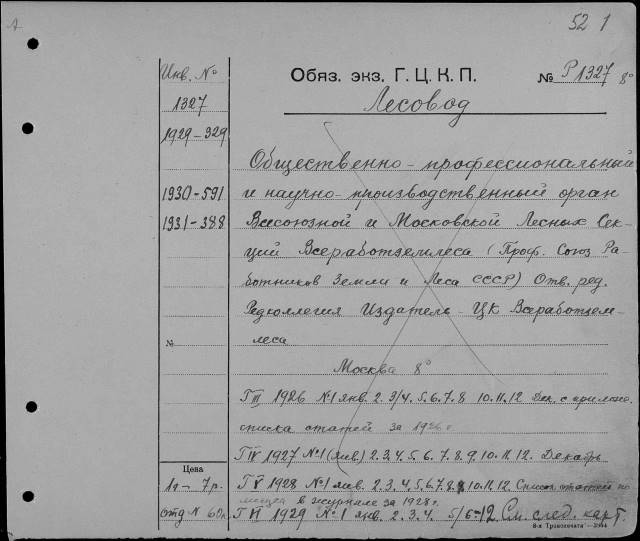 52 1
Инв. №
Обяз. экз. Г. Ц. К. П.
№ Р1327 8°
1327
Лесовод
1929-329
Общественно-профессиональный
1930-591
и научно-производственный орган
1931-388
Всесоюзной и Московской Лесных Сек-
ций Всеработземлеса (Проф. Союз Ра-
ботников Земли и Леса СССР) Отв. ред.
Редколлегия Издатель ЦК Всеработзем-
№
леса
Москва 8°
Г III 1926 №1 янв. 2. 3/4. 5. 6. 7. 8 10. 11. 12 Дек. с прилож.
списка статей за 1926 г
Г IV 1927 №1 (янв) 2. 3. 4. 5. 6. 7. 8. 9. 10. 11. 12. Декабрь
Цена
1 г - 7 р.
Г V 1928 №1 янв. 2. 3. 4. 5. 6. 7. 8 10. 11. 12. Список статей по-
мещ в журнале за 1928 г.
отд № 60к
Г VI 1929 №1 янв. 2. 3. 4. 5/6-12 См. след. карт.